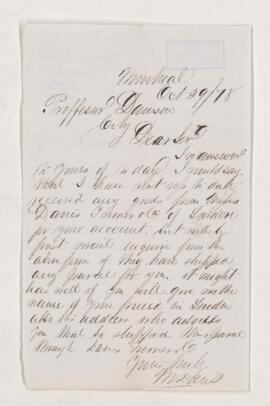 Montreal
Oct 29/78
Professor Dawson
City
Dear Sir
In answer
to yours of to day I would say
that I have not up to date
received any goods from Messrs
Davis Turner & Co of London
for your account. but will by
first mail inquire from the
above firm if they have shipped
any parcel for you. it might
be as well if you will give me the
name of your friend in London
also his address who advises
you that he shipped this parcel
through Davis Turner & Co
Yours truly